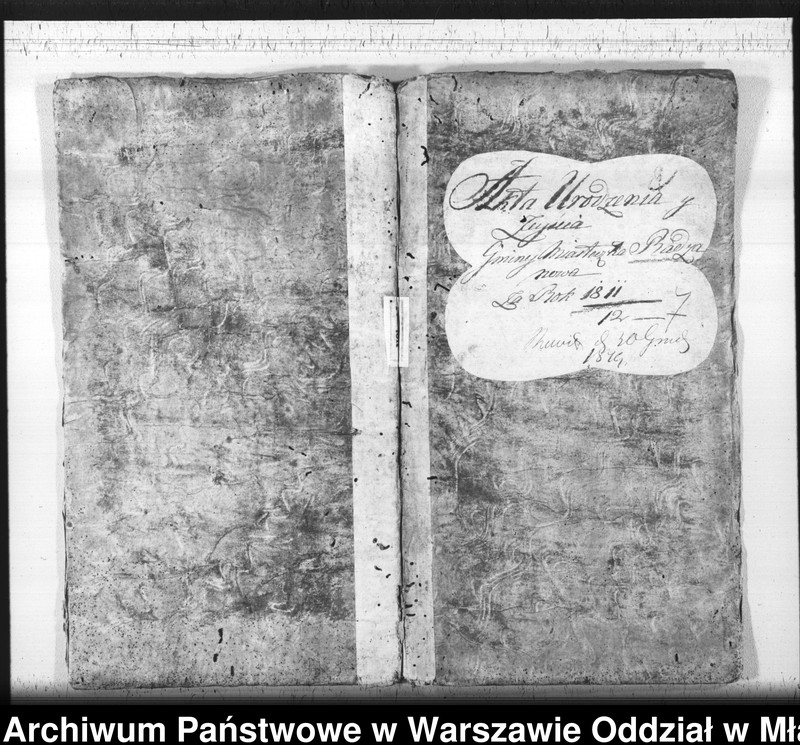 Akta Urodzenia y
Zeyścia
Gminy Miasteczka Radza
nowa
Za Rok 1811
12 — 7
d 30 Grud
Archiwum Państwowe w Warszawie Oddział w Mła